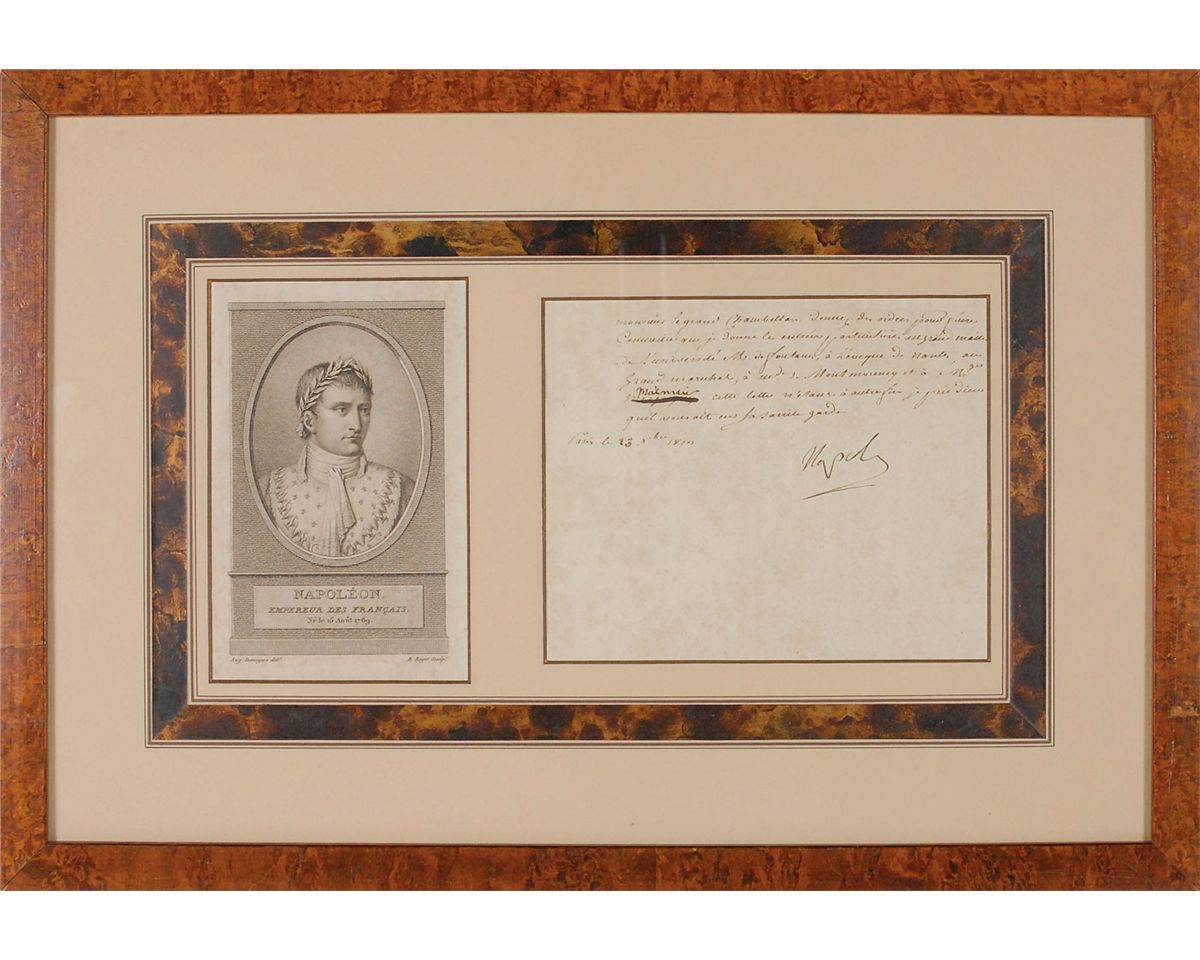 NAPOLÉON.
EMPEREUR DES FRANÇAIS.
Né le 15 Août 1769.
Aug. delt.
B. Roger Sculpt.
monsieur le grand Chambellan donnez des ordres pour faire
que je donne les entrées particulières au grand maitre
de L'université M. de fontane, à L'eveque de nantes, au
grand marechal, à de Montmorency et à M.
cette lettre n'etant à autre fin je prie dieu
qu'il vous ait en sa sainte garde.
Paris le 23 Xbre
Napole